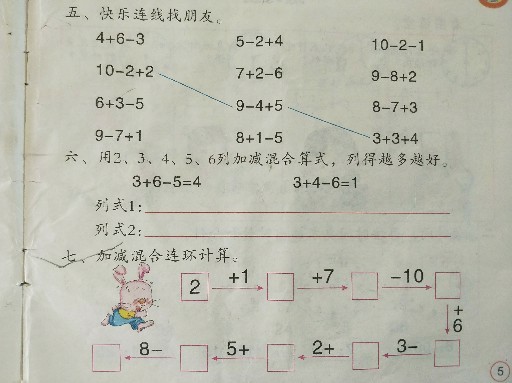 五、快乐连线找朋友。
4+6-3 5-2+4 10-2-1
10-2+2 7+2-6 9-8+2
6+3-5 9-4+5 8-7+3
9-7+1 8+1-5 3+3+4
六、用2、3、4、5、6列加减混合算式，列得越多越好。
3+6-5=4 3+4-6=1
列式1:
列式2:
七、加减混合连环计算。
2 +1 +7 -10
+6
8- 5+ 2+ 3-
5